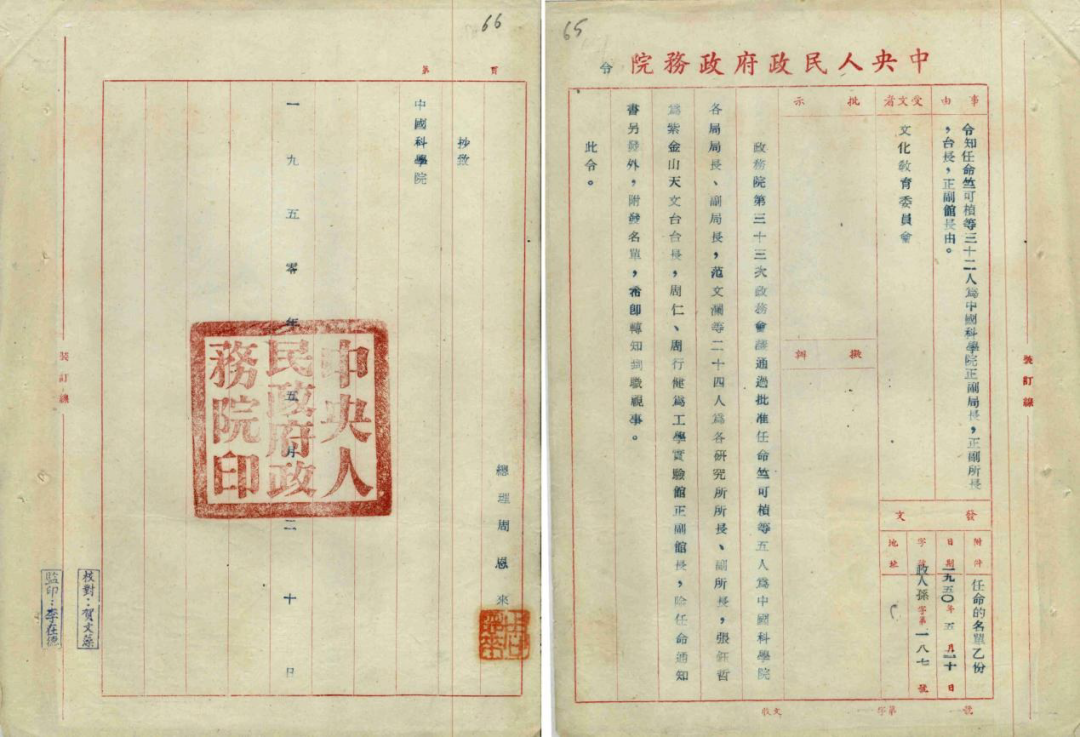 65
中央人民政府政務院 令
事由
令知任命竺可楨等三十二人爲中國科學院正副局長,正副所長
,台長,正副館長由。
受文者
文化教育委員會
批示
擬辦
發文
附件
任命的名單乙份
日期
一九五〇年五月二十日
字號
政人孫字第一八七號
地址
政務院第三十三次政務會議通過批准任命竺可楨等五人爲中國科學院
各局局長、副局長,范文瀾等二十四人爲各研究所所長、副所長,張鈺哲
爲紫金山天文台台長,周仁、周行健爲工學實驗館正副館長,除任命通知
書另發外,附發名單,希卽轉知到職視事。
此令。
裝訂線
收文 字第 號
66
第 頁
總理周恩來
抄致
中國科學院
一九五零年五月二十日
中央人民政府政務院印
校對:賀文
監印:李在德
裝訂線